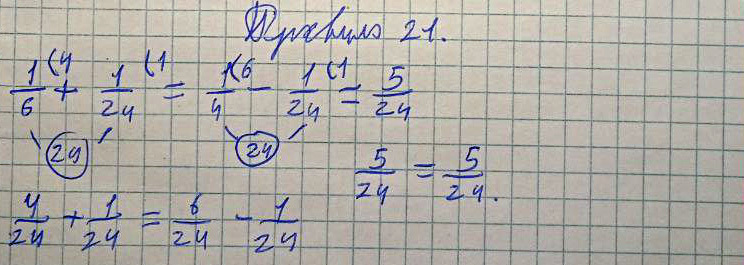 Правило 21.
1/6 (4 + 1/24 (1 = 1/4 (6 - 1/24 (1 = 5/24
24 24
5/24 = 5/24.
4/24 + 1/24 = 6/24 - 1/24